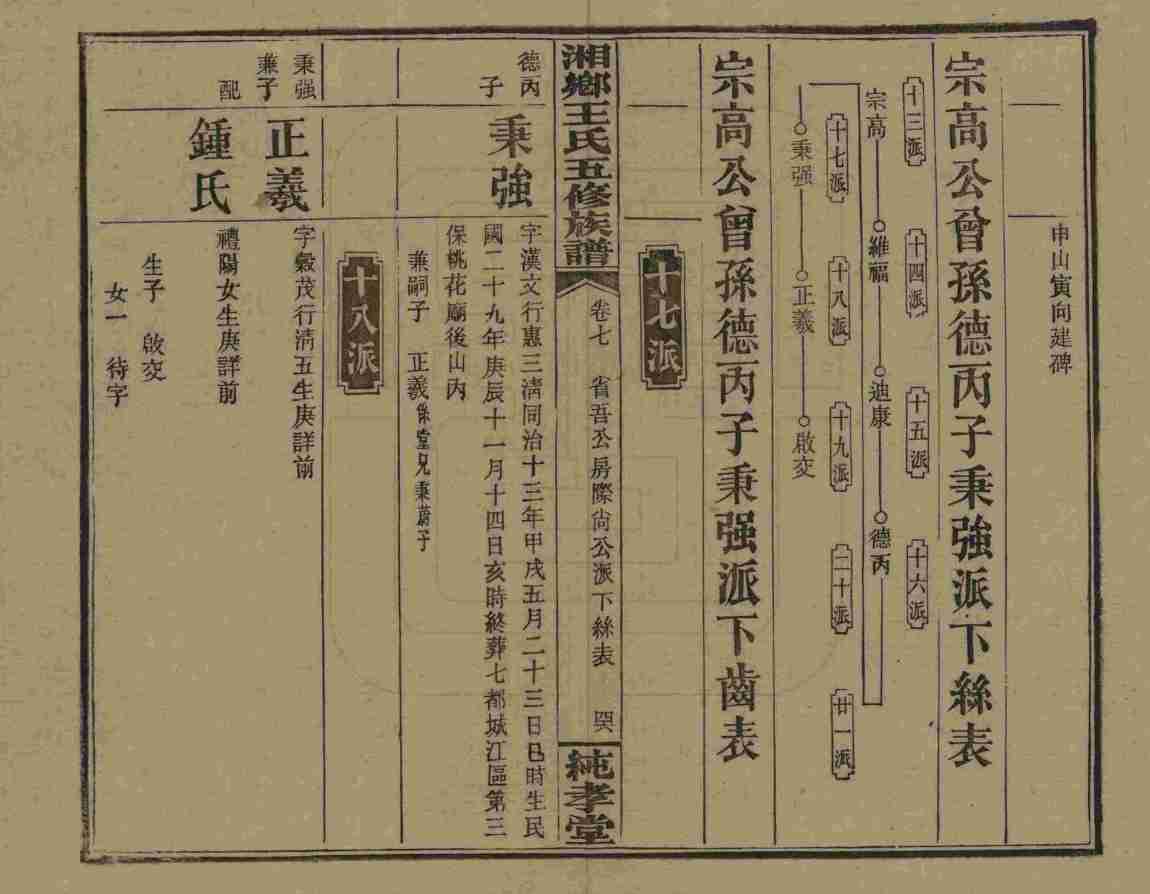 申山寅向建碑
宗高公曾孫德丙子秉強派下絲表
十三派
十四派
十五派
十六派
宗高
維福
迪康
德丙
十七派
十八派
十九派
二十派
廿一派
秉强
正義
啟交
宗高公曾孫德丙子秉强派下齒表
十七派
湘鄉王氏五修族譜
卷七 省吾公房際尚公派下絲表
純孝堂
德丙
子
秉強
字漢文行惠三淸同治十三年甲戌五月二十三日巳時生民
國二十九年庚辰十一月十四日亥時終葬七都城江區第三
保桃花廟後山內
兼嗣子 正義係堂兄秉蔚子
十八派
秉强
兼子
正義
字毅茂行淸五生庚詳前
配
鍾氏
禮陽女生庚詳前
生子 啟交
女一 待字